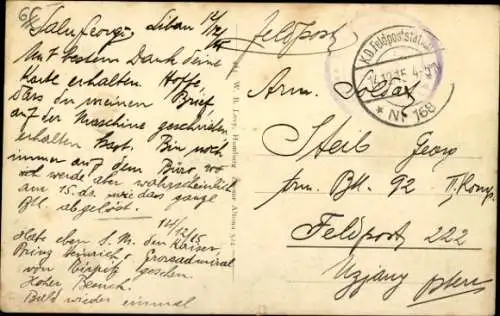 Salu Georg, Libau 14/12 15
Mit bestem Dank deine
Karte erhalten. Hoffe
dass du meinen Brief
auf der Maschine geschrieben
erhalten hast. Bin noch
immer auf dem Büro, wo
ich werde aber wahrscheinlich
am 15. ds. wie das ganze
Btl. abgelöst.
14/12/15
Habe eben S. M. den Kaiser
Prinz Heinrich, Grossadmiral
von gesehen
Hoher Besuch.
Bald wieder einmal
Feldpost
K.D. Feldpoststation
14.12.15
* Nr. 168
Arm. Soldat
Steib Georg
Arm. Btl. 92 II. Komp.
Feldpost 222
W. B. Hamburg Altona